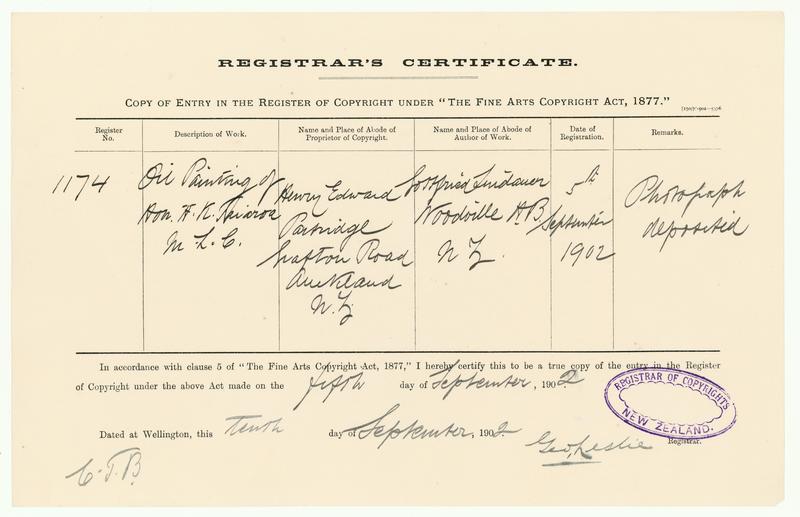 REGISTRAR'S CERTIFICATE.
COPY OF ENTRY IN THE REGISTER OF COPYRIGHT UNDER "THE FINE ARTS COPYRIGHT ACT, 1877."
Register No.
Description of Work.
Name and Place of Abode of Proprietor of Copyright.
Name and Place of Abode of Author of Work.
Date of Registration.
Remarks.
1174
Oil Painting of
Hon. H. K. Taiaroa
M. L. C.
Henry Edward
Partridge
Grafton Road
Auckland
N.Z.
Gottfried Lindauer
Woodville H.B
N Z.
5th
September
1902
Photograph
deposited
In accordance with clause 5 of "The Fine Arts Copyright Act, 1877," I hereby certify this to be a true copy of the entry in the Register
of Copyright under the above Act made on the fifth day of September, 1902.
REGISTRAR OF COPYRIGHTS
NEW ZEALAND.
Dated at Wellington, this tenth day of September, 1902.
Geo. Leslie
Registrar.
C.J.B.